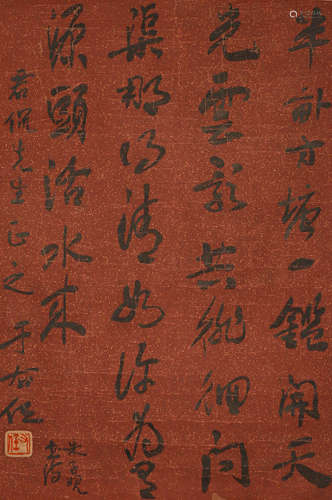 半亩方塘一鑑開天
光雲影共徘徊問
渠那得清如许為有
源頭活水來
君侃先生正之 于右任
朱